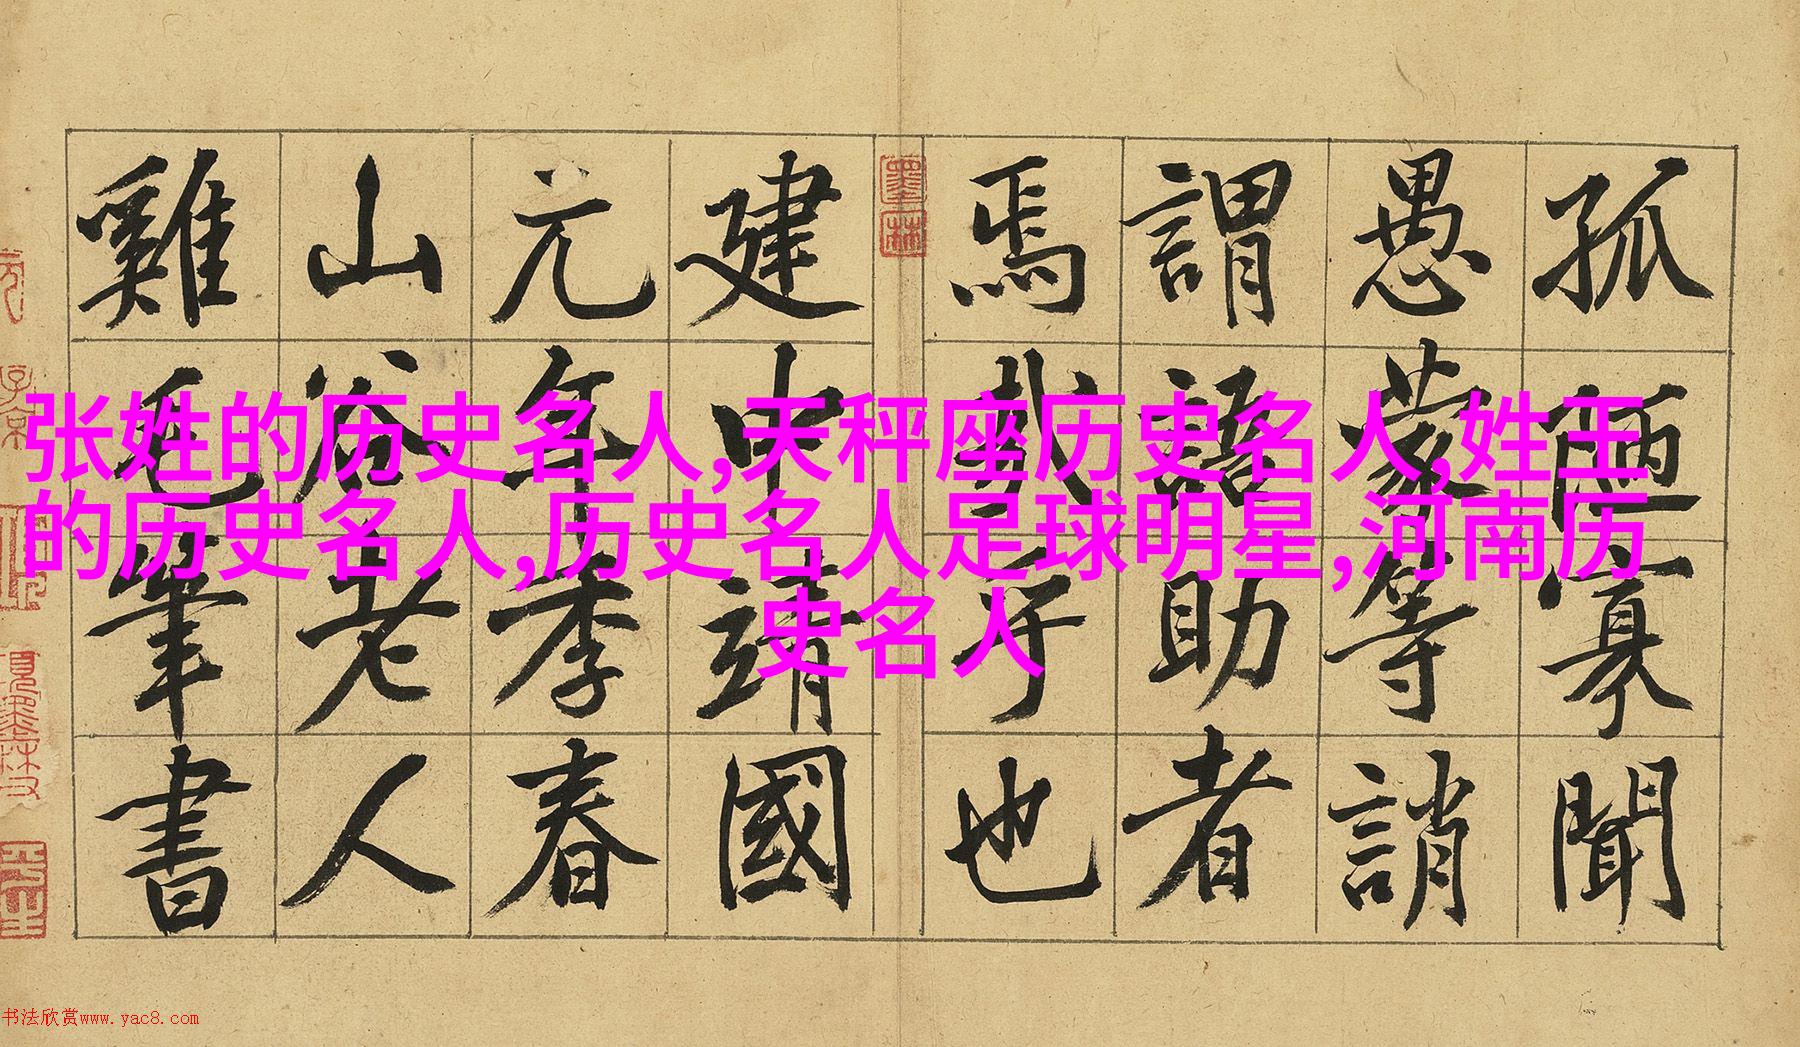 孤陋寡聞
愚蒙等誚
謂語助者
焉哉乎也
墨林
建中靖國
元年季春
山谷老人
雞毛筆書
张姓的历史名人,天秤座历史名人,姓王
的历史名人,历史名人足球明星,河南历
史名人
书法欣赏www.yac8.com